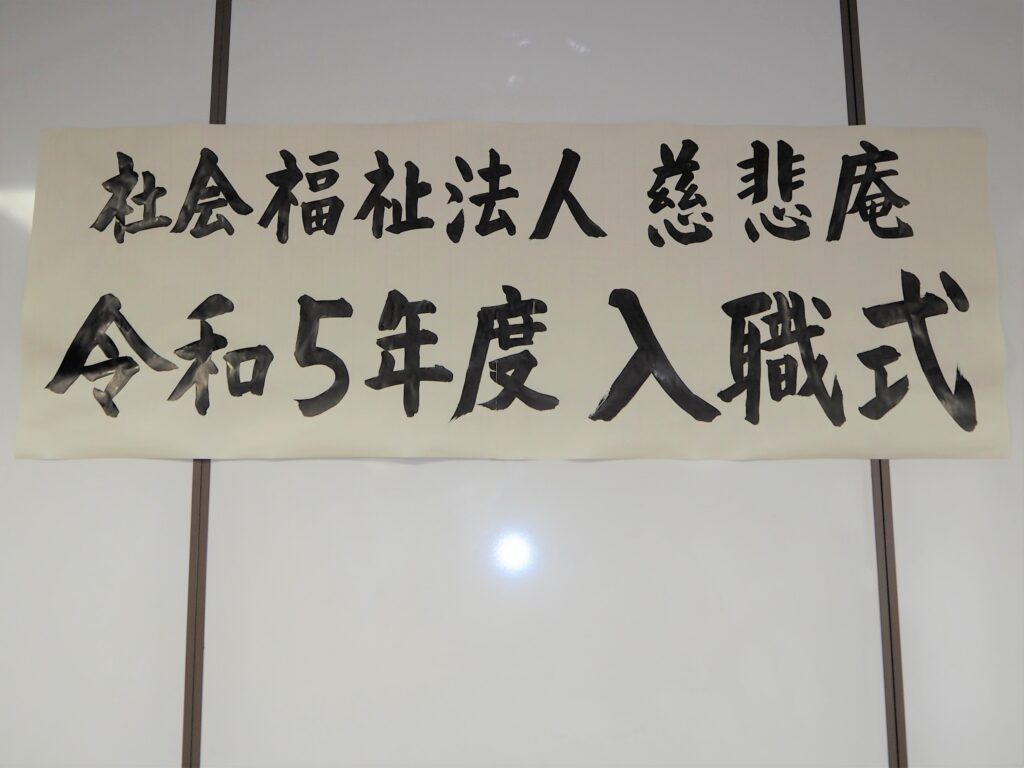 社会福祉法人 慈悲庵
令和5年度 入職式